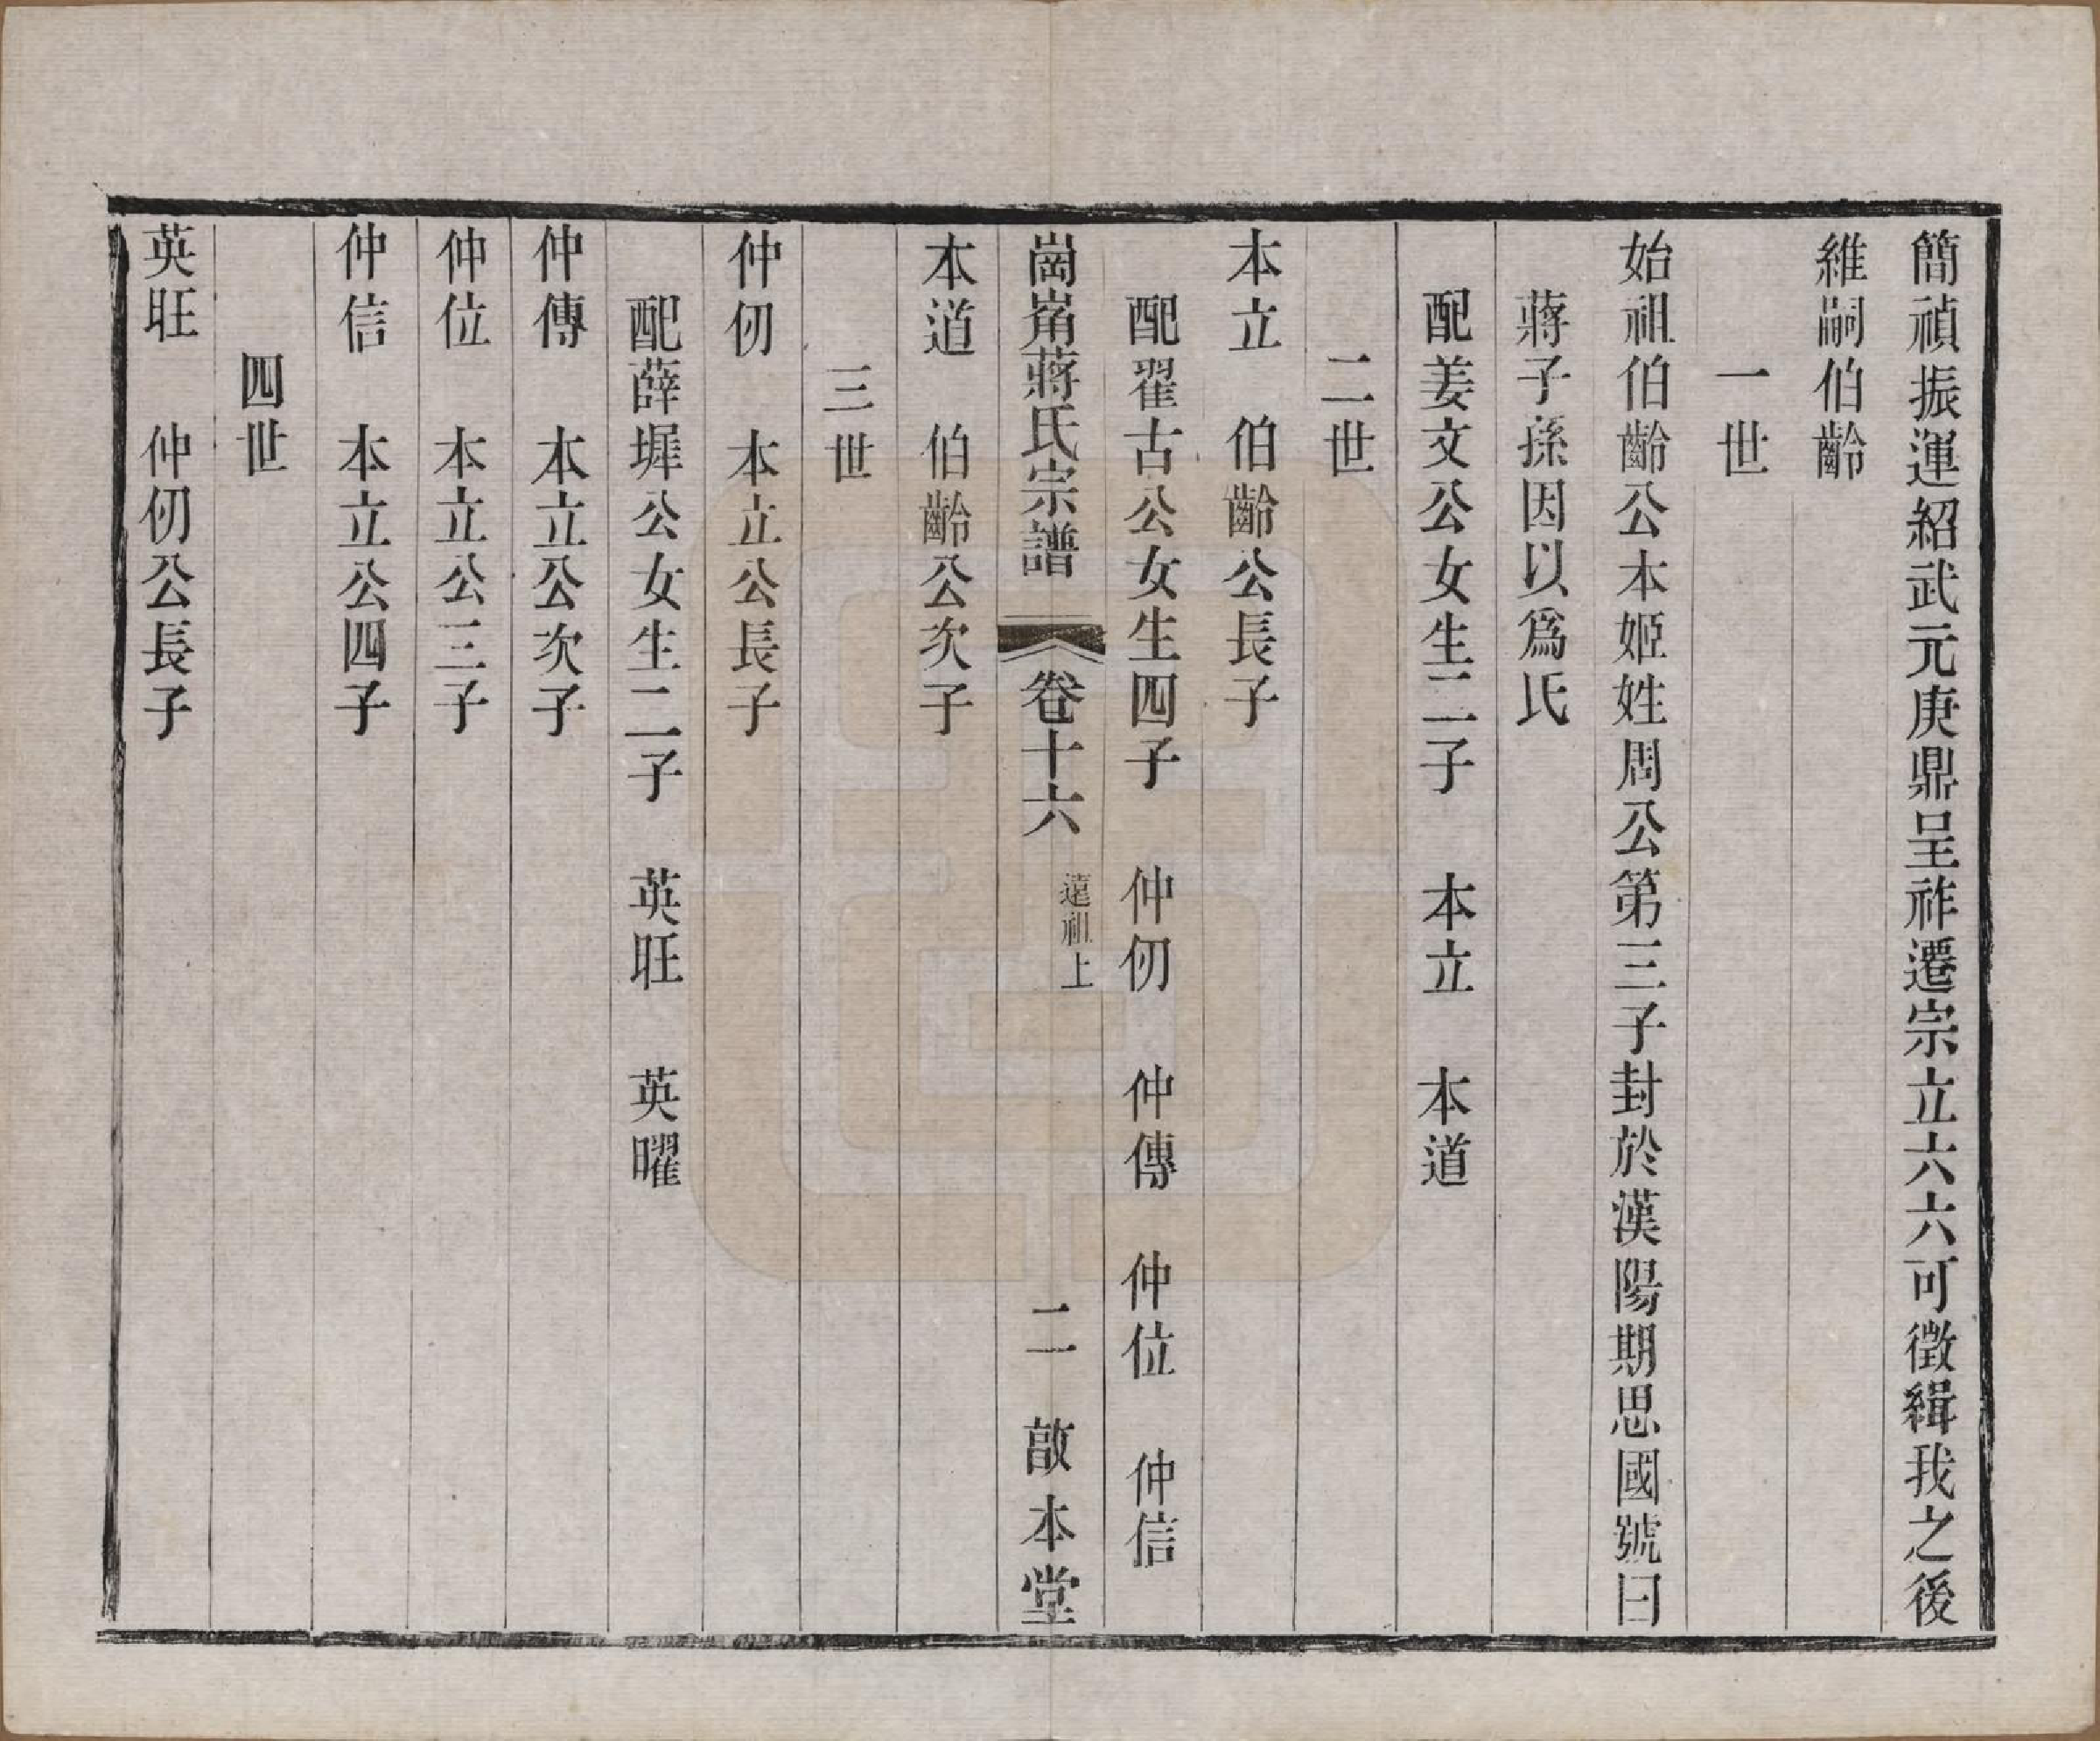 簡禎振運紹武元庚鼎呈祚遷宗立六六可徵緝我之後
維嗣伯齡
一世
始祖伯齡公本姬姓周公第三子封於漢陽期思國號曰
蔣子孫因以爲氏
配姜文公女生二子　本立　本道
二世
本立　伯齡公長子
配翟古公女生四子　仲仞　仲傳　仲位　仲信
崗觜蔣氏宗譜　卷十六　遠祖上　二　啟本堂
本道　伯齡公次子
三世
仲仞　本立公長子
配薛墀公女生二子　英旺　英曜
仲傳　本立公次子
仲位　本立公三子
仲信　本立公四子
四世
英旺　仲仞公長子